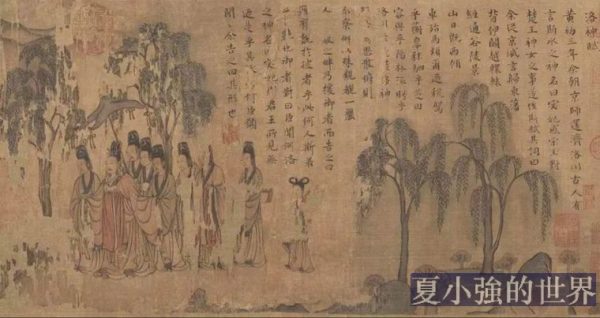 洛神賦
黃初三年余朝京師還濟洛川古人有
言斯水之神名曰宓妃感宋玉對
楚王神女之事遂作斯賦其詞曰
余從京域言歸東藩
背伊闕越轘轅
經通谷陵景
山日既西傾
車殆馬煩爾迺稅駕
乎蘅皋秣駟乎芝田
容與乎陽林流眄乎
洛川於是精移神
駭忽焉思散俯則
未察仰以殊觀覩一麗
人畔乃援御者而告之曰
爾有覿於彼者乎此何人斯若
此之艷也御者對曰臣聞河洛
之神名曰宓妃則君王所見無
迺是乎其狀若何臣願
聞之余告之曰其形也
夏小強的世界